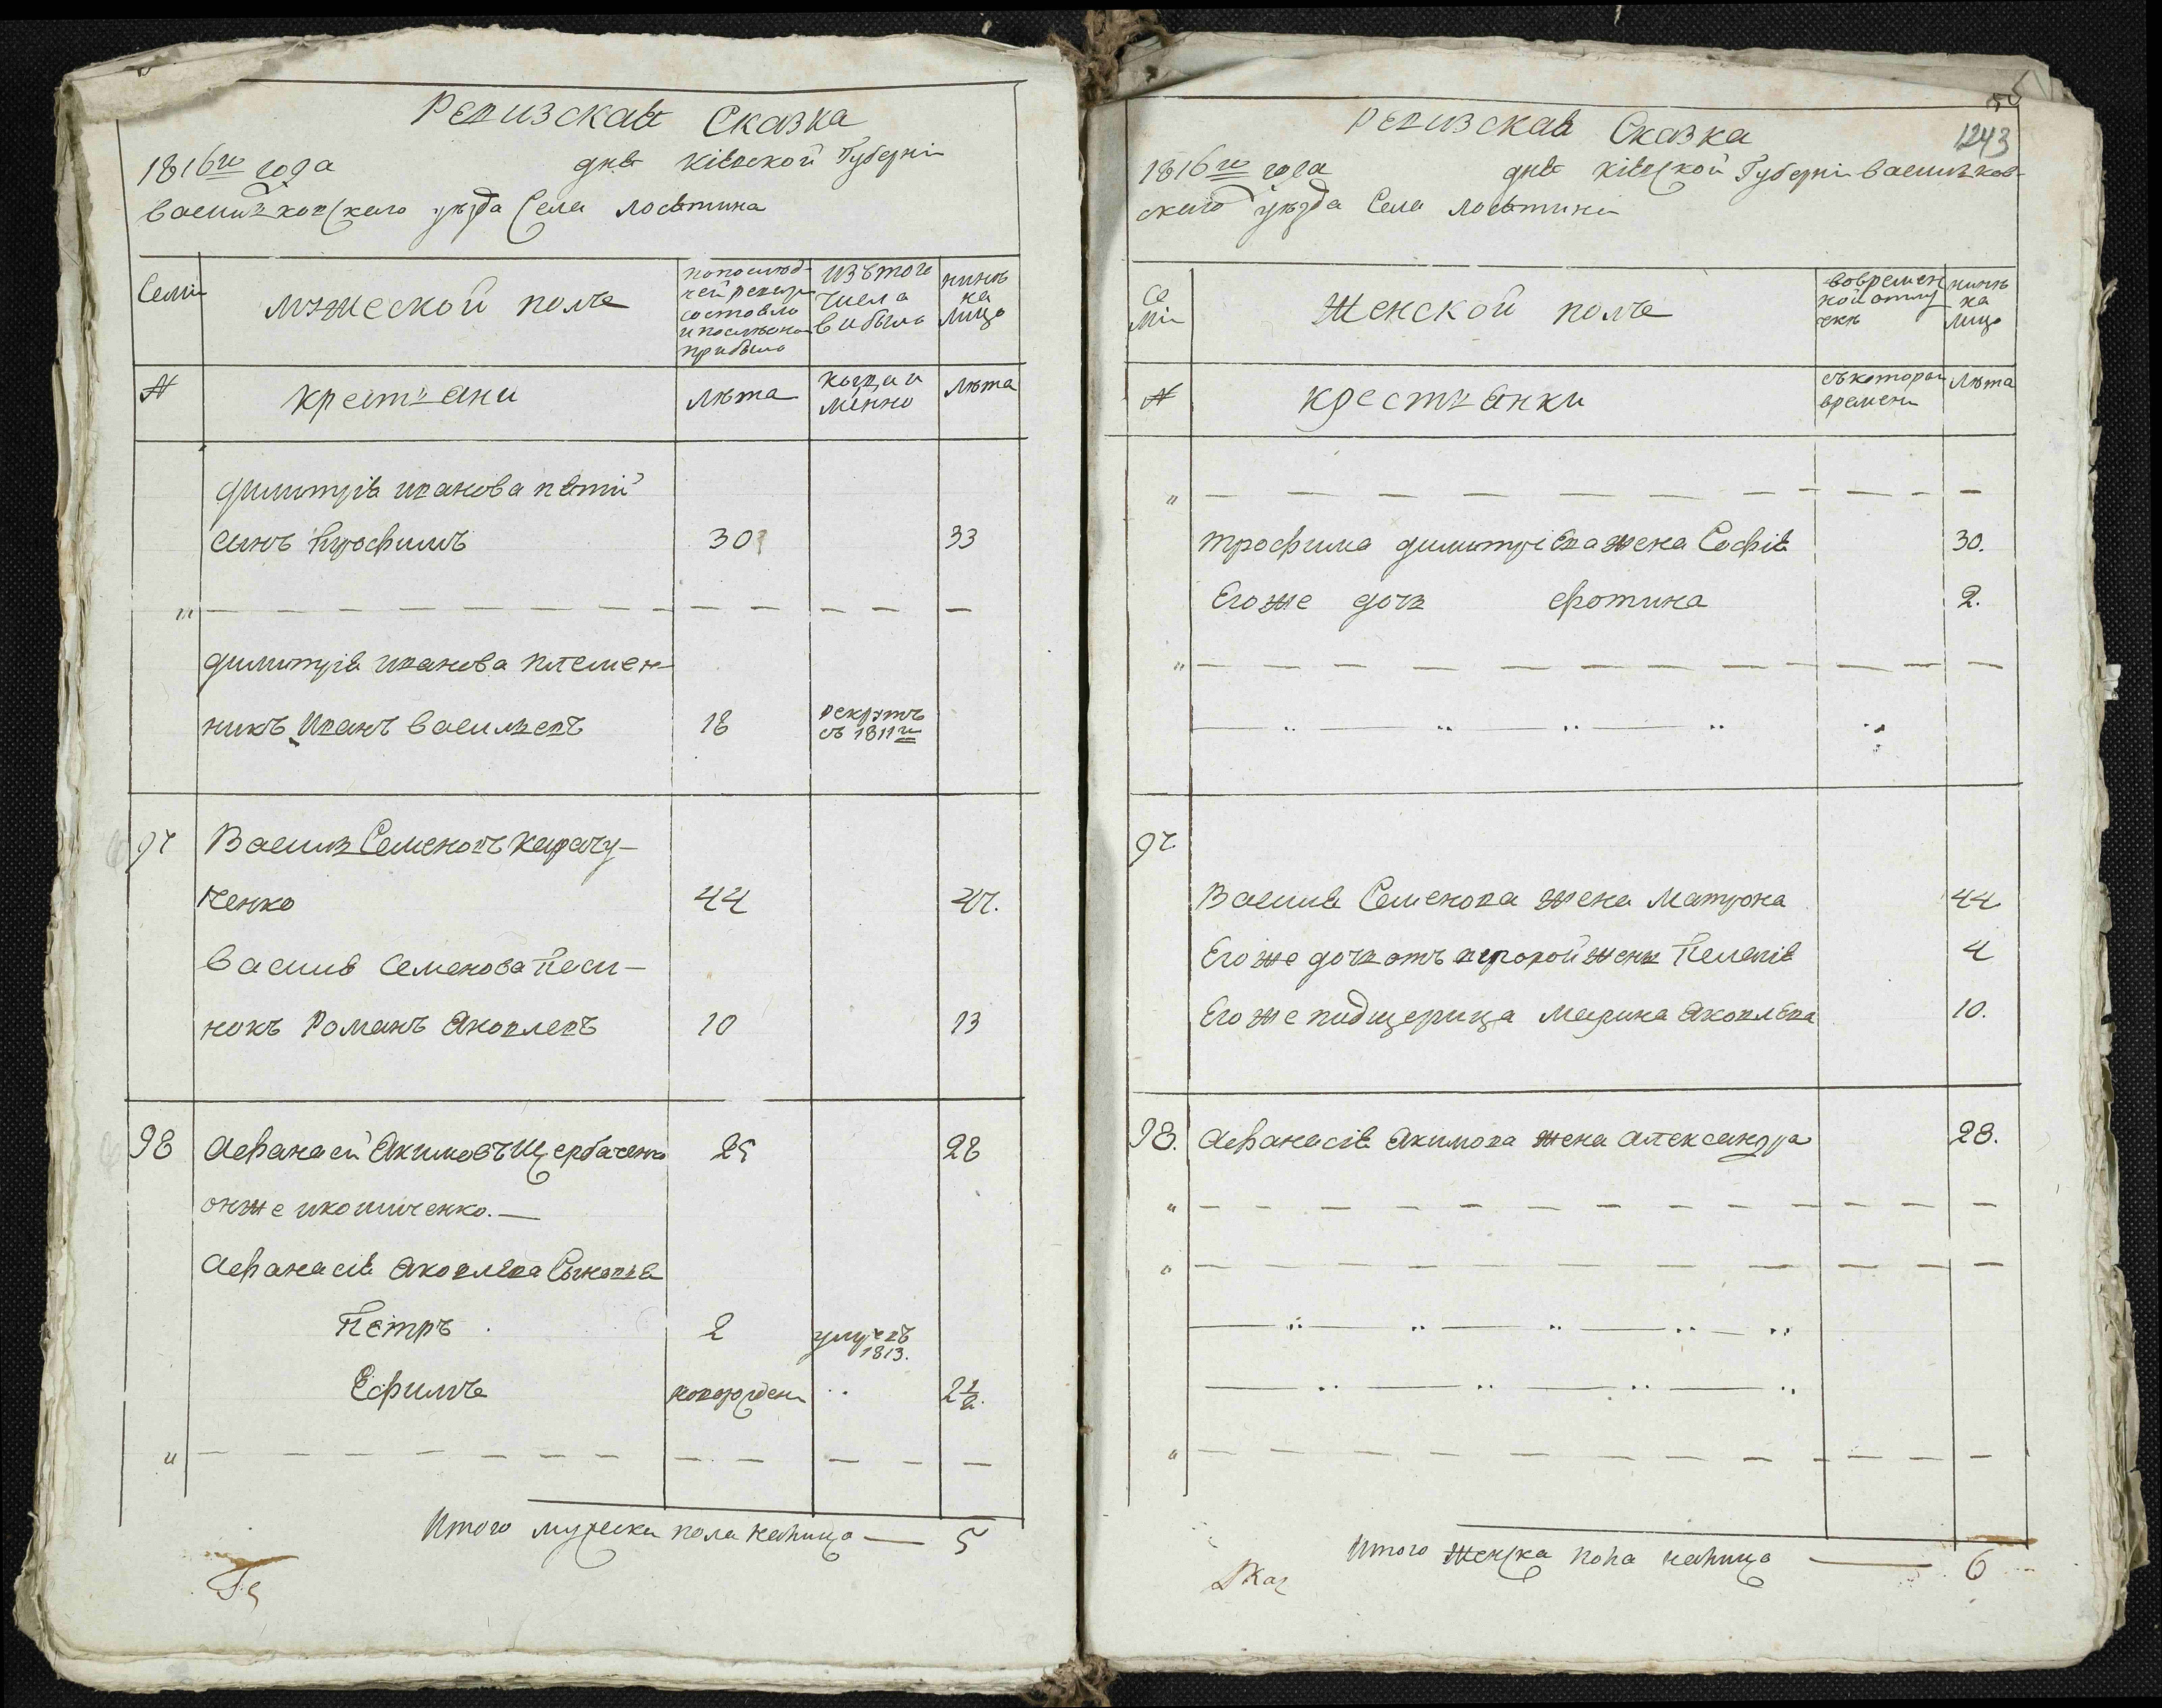 Ревизская Сказка
1816го года дня Кіевской Губерніи
Васильковского уезда Села Лосятина
Семіи
мужеской полъ
по послед-
ней ревизіи
состояло
и после оной
прибыло
изъ того
числа
выбыло
нынѣ
на
лицо
№
крестьяни
лѣта
когда и
мянно
лѣта
Димитрія Иванова пятій
Синъ Трофимъ 30 33
Димитрія Иванова племен-
никъ Иванъ Васильевъ 18 рекрутъ
съ 1811го
97 Василь Семеновъ Карачу-
ченко 44 47.
Василія Семенова Паси-
нокъ Романъ Яковлевъ 10 13
98 Афанасій Якимовъ Щербаченко 25 28
онже
Афанасія Яковлева Сыновья
Петръ 2 умре въ
1813.
Ефимъ новорожден 2 1/2.
Итого мужеска пола налицо — 5
Ревизская Сказка
1243
1816го года дня Кіевской Губерніи Васильков-
ского уезда Села Лосятина
Се
міи
Женской полъ
во времен
ной отлу
чкѣ
нынѣ
на
лицо
№
крестьянки
съ которого
времени
лѣта
Трофима Димитріева жена Софія 30.
Его же дочь Фотина 2.
97
Василія Семенова жена Матрона 44
Его же дочь отъ второй жены Пелагія 4
Его же падщерица Марина Яковлева 10.
98. Афанасія Якимова жена Александра 28.
Итого женска пола налицо — 6